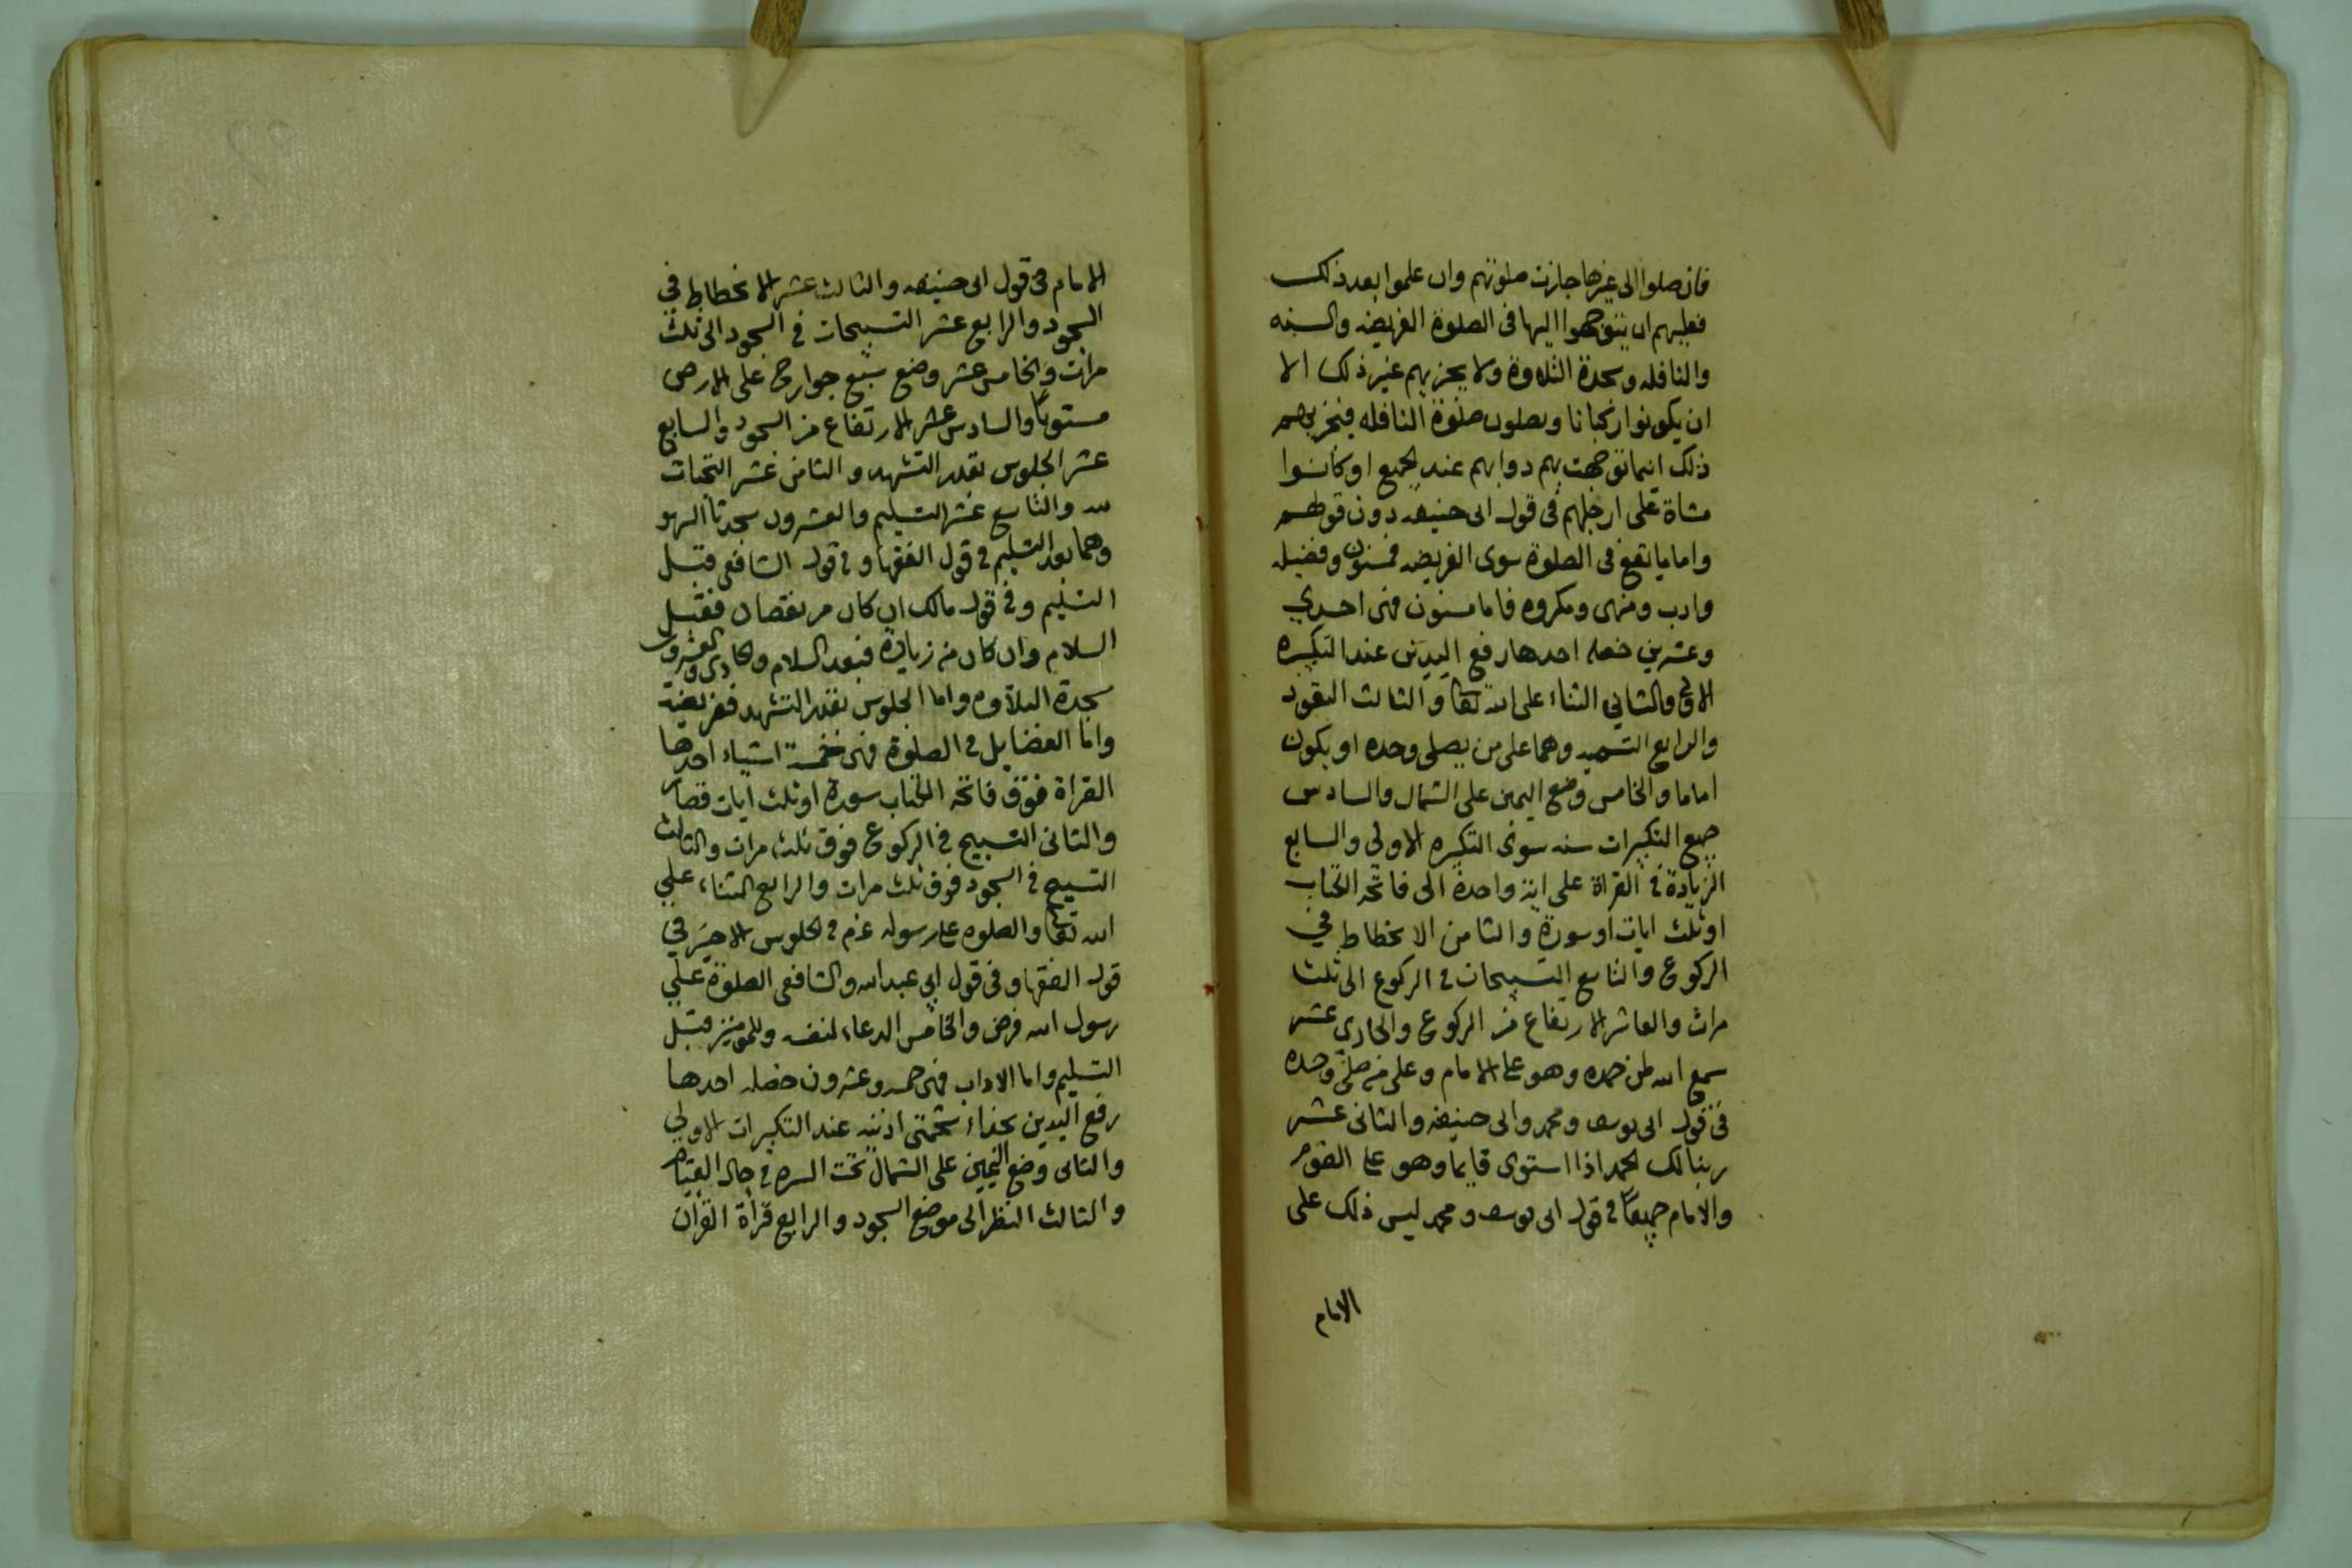 فان صلوا الى غيرها جازت صلوتهم وان علموا بعد ذلك
فعليهم ان يتوجهوا اليها فى الصلوة الفريضه والسنه
والنافله وسجدة التلاوة ولا يجزيهم غير ذلك الا
ان يكونوا ركبانا ويصلون صلوة النافله فيجزيهم
ذلك اينما توجهت بهم دوابهم عند الجميع او كانوا
مشاة على ارجلهم فى قول ابى حنيفه دون قولهم
واما ما يقع فى الصلوة سوى الفريضه فمسنون وفضيله
وادب ومنهى ومكروه فاما مسنون فهى احدي
وعشرين خصله احدها رفع اليدين عند التكبيره
الاولى والثاني الثناء على الله تعا والثالث التعوذ
والرابع التسميه وهما على من يصلى وحده او يكون
اماما والخامس وضع اليمين على الشمال والسادس
جميع التكبيرات سنه سوى التكبيره الاولى والسابع
الزيادة فى القراة على اية واحدة الى فاتحه الكتاب
او ثلث ايات او سورة والثامن الانحطاط في
الركوع والتاسع التسبيحات فى الركوع الى ثلث
مرات والعاشر الارتفاع من الركوع والحادي عشر
سمع الله لمن حمده وهو على الامام وعلى من صلى وحده
فى قول ابى يوسف ومحمد وابى حنيفه والثانى عشر
ربنا لك الحمد اذا استوى قايما وهو على القوم
والامام جميعًا فى قول ابى يوسف ومحمد ليس ذلك على
الامام
الامام فى قول ابى حنيفه والثالث عشر الانحطاط في
السجود والرابع عشر التسبيحات فى السجود الى ثلث
مرات والخامس عشر وضع سبع جوارح على الارض
مستويًا والسادس عشر الارتفاع من السجود والسابع
عشر الجلوس بقدر التشهد والثامن عشر التحيات
لله والتاسع عشر التسليم والعشرون سجدتا السهو
وهما بعد التسليم فى قول الفقها وفى قول الشافعى قبل
التسليم وفى قول مالك ان كان من نقصان فقبل
السلام وان كان من زيادة فبعد السلام والحادى والعشرون
سجدة التلاوه واما الجلوس بقدر التشهد ففريضة
واما الفضايل فى الصلوة فهى خمسة اشياء احدها
القراة فوق فاتحه الكتاب سورة او ثلث ايات قصار
والثانى التسبيح فى الركوع فوق ثلث مرات والثالث
التسبيح فى السجود فوق ثلث مرات والرابع الثناء علي
الله تعا والصلوه على رسوله عم فى الجلوس الاخير في
قول الفقها وفى قول ابي عبد الله والشافعى الصلوة علي
رسول الله فرض والخامس الدعاء لنفسه وللمومنين قبل
التسليم واما الاداب فهى خمسه وعشرون خصله احدها
رفع اليدين بحذاء شحمتى اذنيه عند التكبيرات الاولي
والثانى وضع اليمين على الشمال تحت السره فى حال القيام
والثالث النظر الى موضع السجود والرابع قرأة القرأن